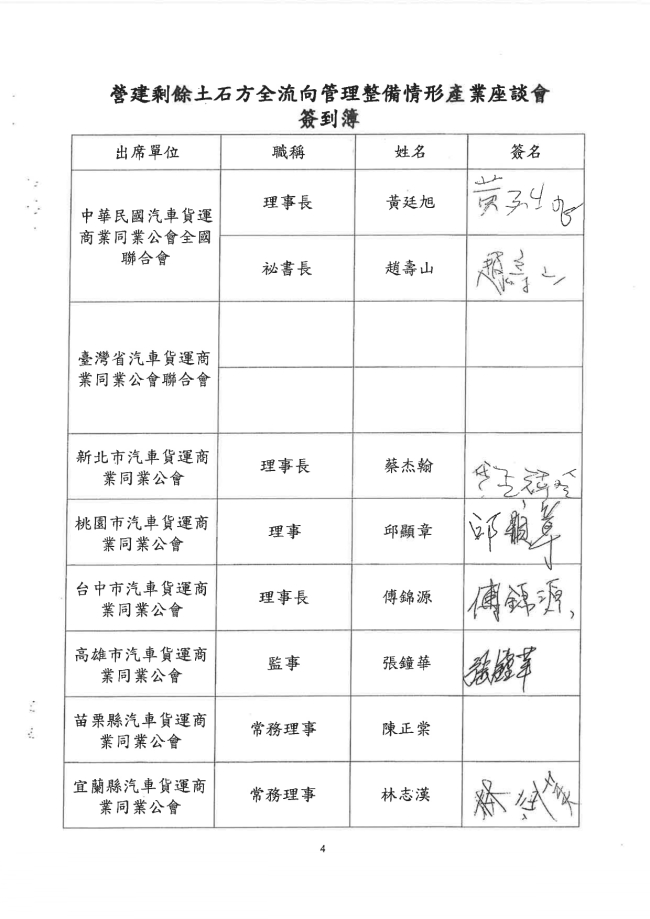 營建剩餘土石方全流向管理整備情形產業座談會
簽到簿
出席單位 職稱 姓名 簽名
中華民國汽車貨運
商業同業公會全國
聯合會
理事長 黃廷旭
祕書長 趙壽山 趙壽山
臺灣省汽車貨運商
業同業公會聯合會
新北市汽車貨運商
業同業公會
理事長 蔡杰翰
桃園市汽車貨運商
業同業公會
理事 邱顯章 邱顯章
台中市汽車貨運商
業同業公會
理事長 傅錦源 傅錦源
高雄市汽車貨運商
業同業公會
監事 張鐘華 張鐘華
苗栗縣汽車貨運商
業同業公會
常務理事 陳正棠
宜蘭縣汽車貨運商
業同業公會
常務理事 林志漢
4